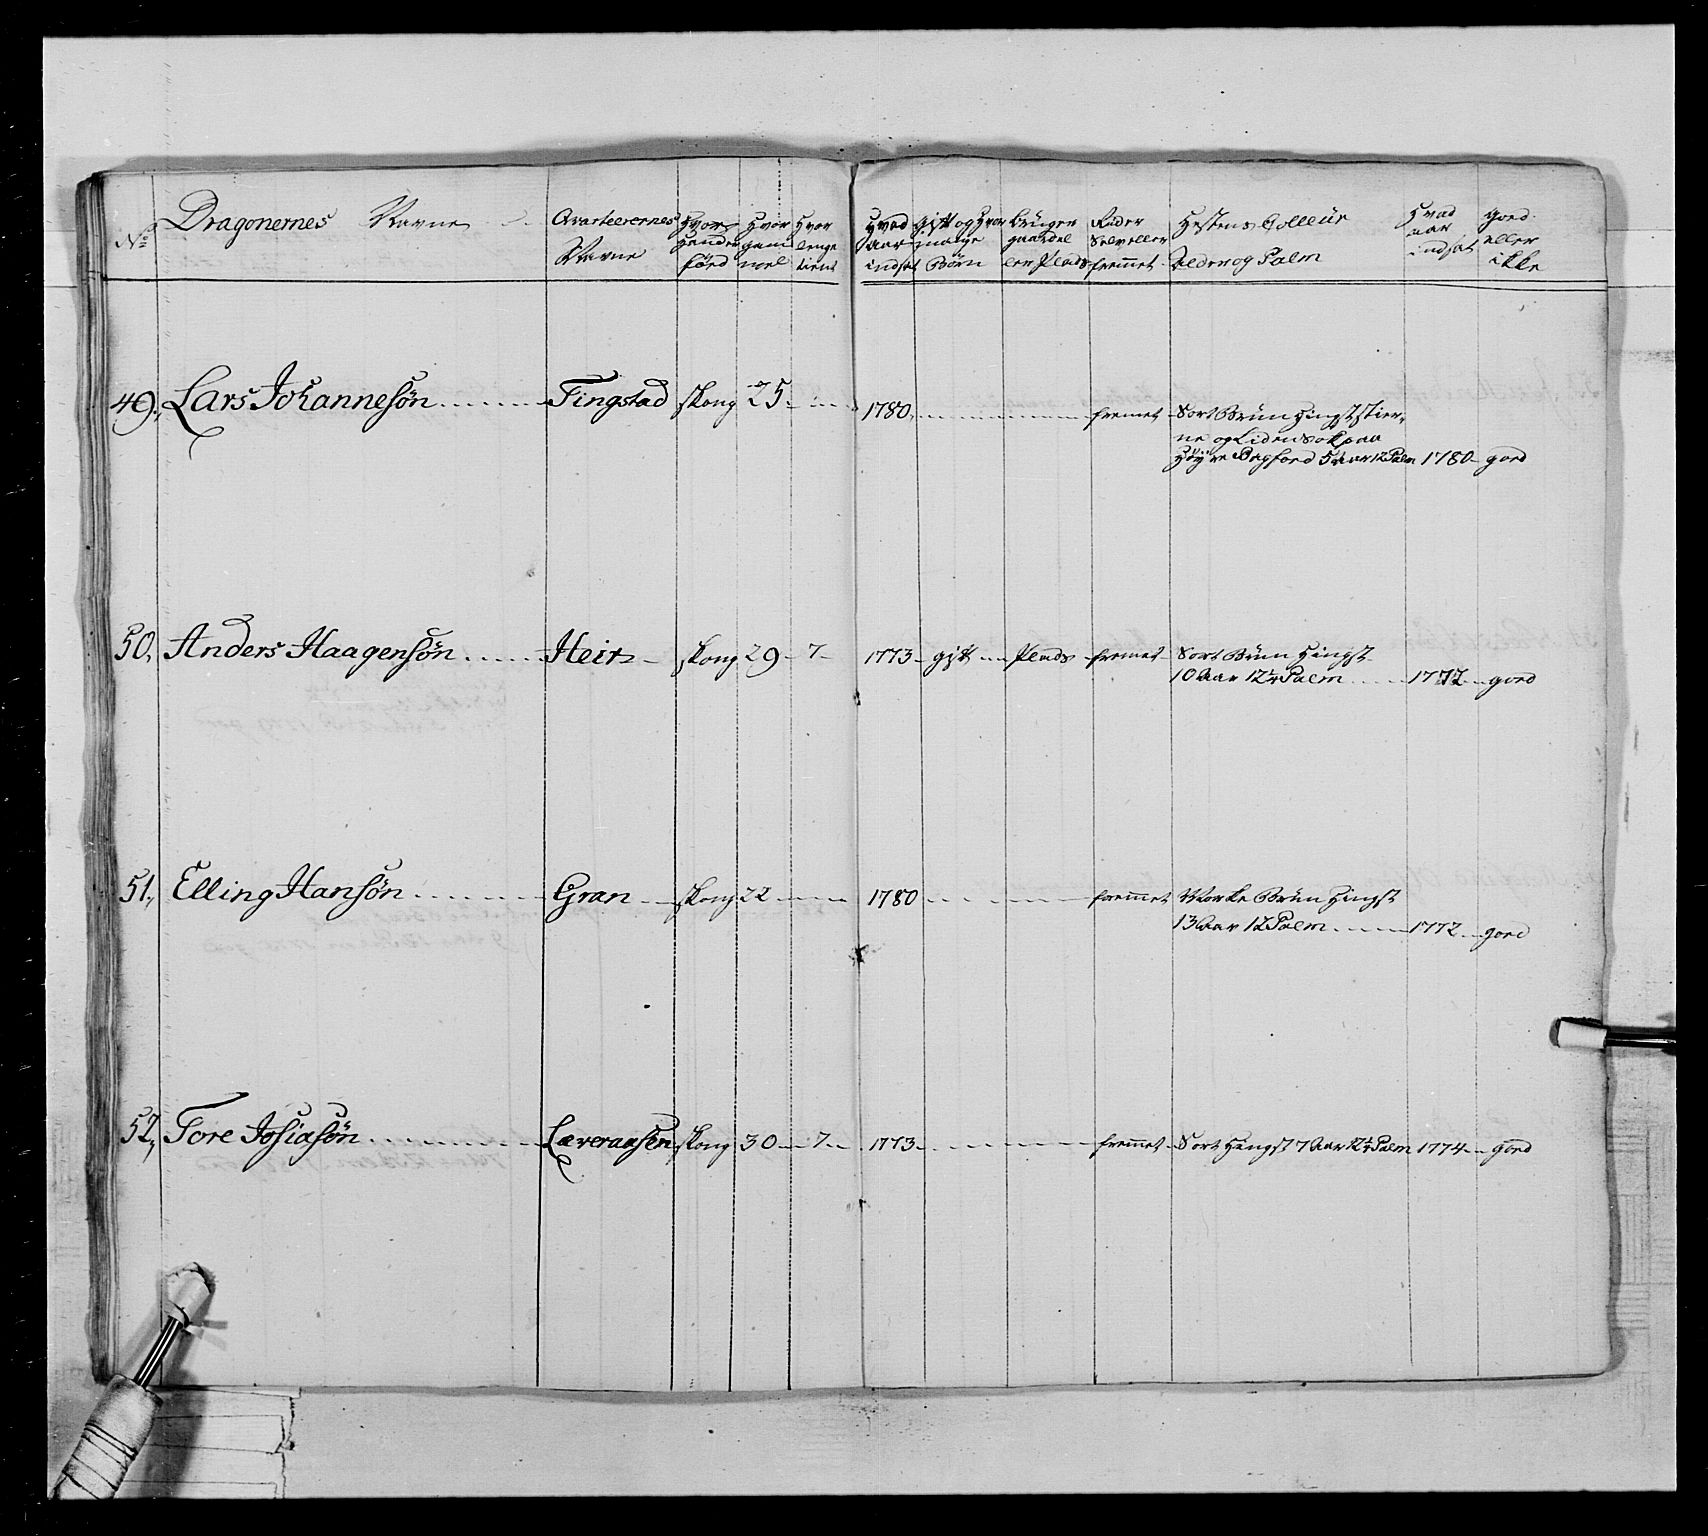 No
Dragonernes Navne
Qvarteerernes Navne
Hvor hand er föed
Hvor gam mel
Hvor lenge tient
Hvad aar indsat
gift og Hvor mange Börn
bruger gaardel ler Plads
Rider Selv eller fremmet
Hestens Colleür Alder og Palm
Hvad aar indsat
goed eller ikke
49. Lars Johannesøn Tingstad skong 25 1780 fremet Sort Brün Hingst stier,
ne og Liden sok paa
Höyre Bagfoed 5 Aar 12 Palm 1780 goed
50. Anders Haagensøn Heir skong 29 7 1773 gift Plads fremet Sort Brün Hingst
10 Aar 12¼ Palm 1777 goed
51. Elling Hansøn Gran skong 22 1780 fremmet Mörke Brün Hingst
13 Aar 12 Palm 1772 goed
52. Tore Josiasøn Læveraasen skong 30 7 1773 fremmet Sort Hingst 7 Aar 12¼ Palm 1774 goed